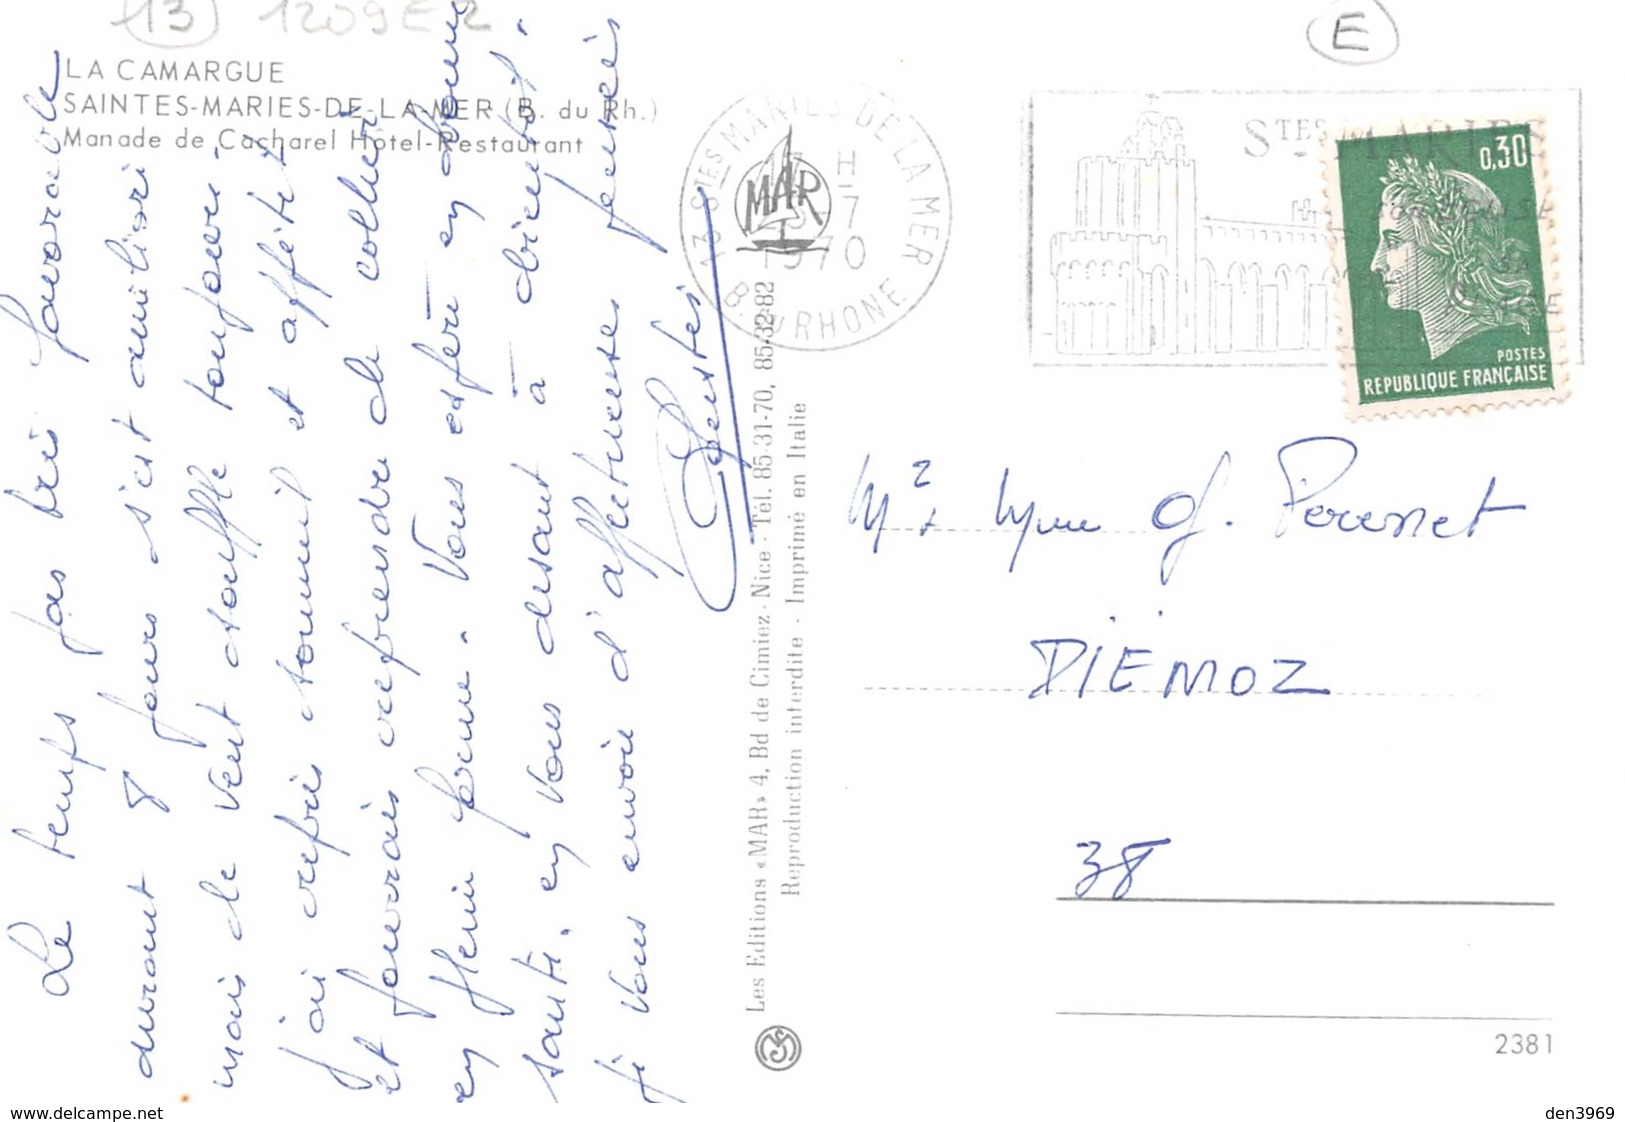 13 1209E2
E
LA CAMARGUE
SAINTES-MARIES-DE-LA-MER (B. du Rh.)
Manade de Cacharel Hôtel-Restaurant
Le temps pas très favorable
durant 8 jours s'est amélioré
mais le vent souffle toujours.
J'ai repris sommeil et appétit
et pourrais reprendre le collier
en pleine forme. Vous espère en bonne
santé, en vous disant à bientôt.
je vous envoie d'affectueuses pensées
13 STES MARIES DE LA MER
H
-7
1970
B. DU RHONE
MAR
STES MARIES
0,30
POSTES
REPUBLIQUE FRANÇAISE
Les Editions «MAR» 4, Bd de Cimiez - Nice - Tél. 85-31-70, 85-32-82
Reproduction interdite - Imprimé en Italie
Mr & Mme J. Perenet
DIÉMOZ
38
2381
www.delcampe.net
den3969